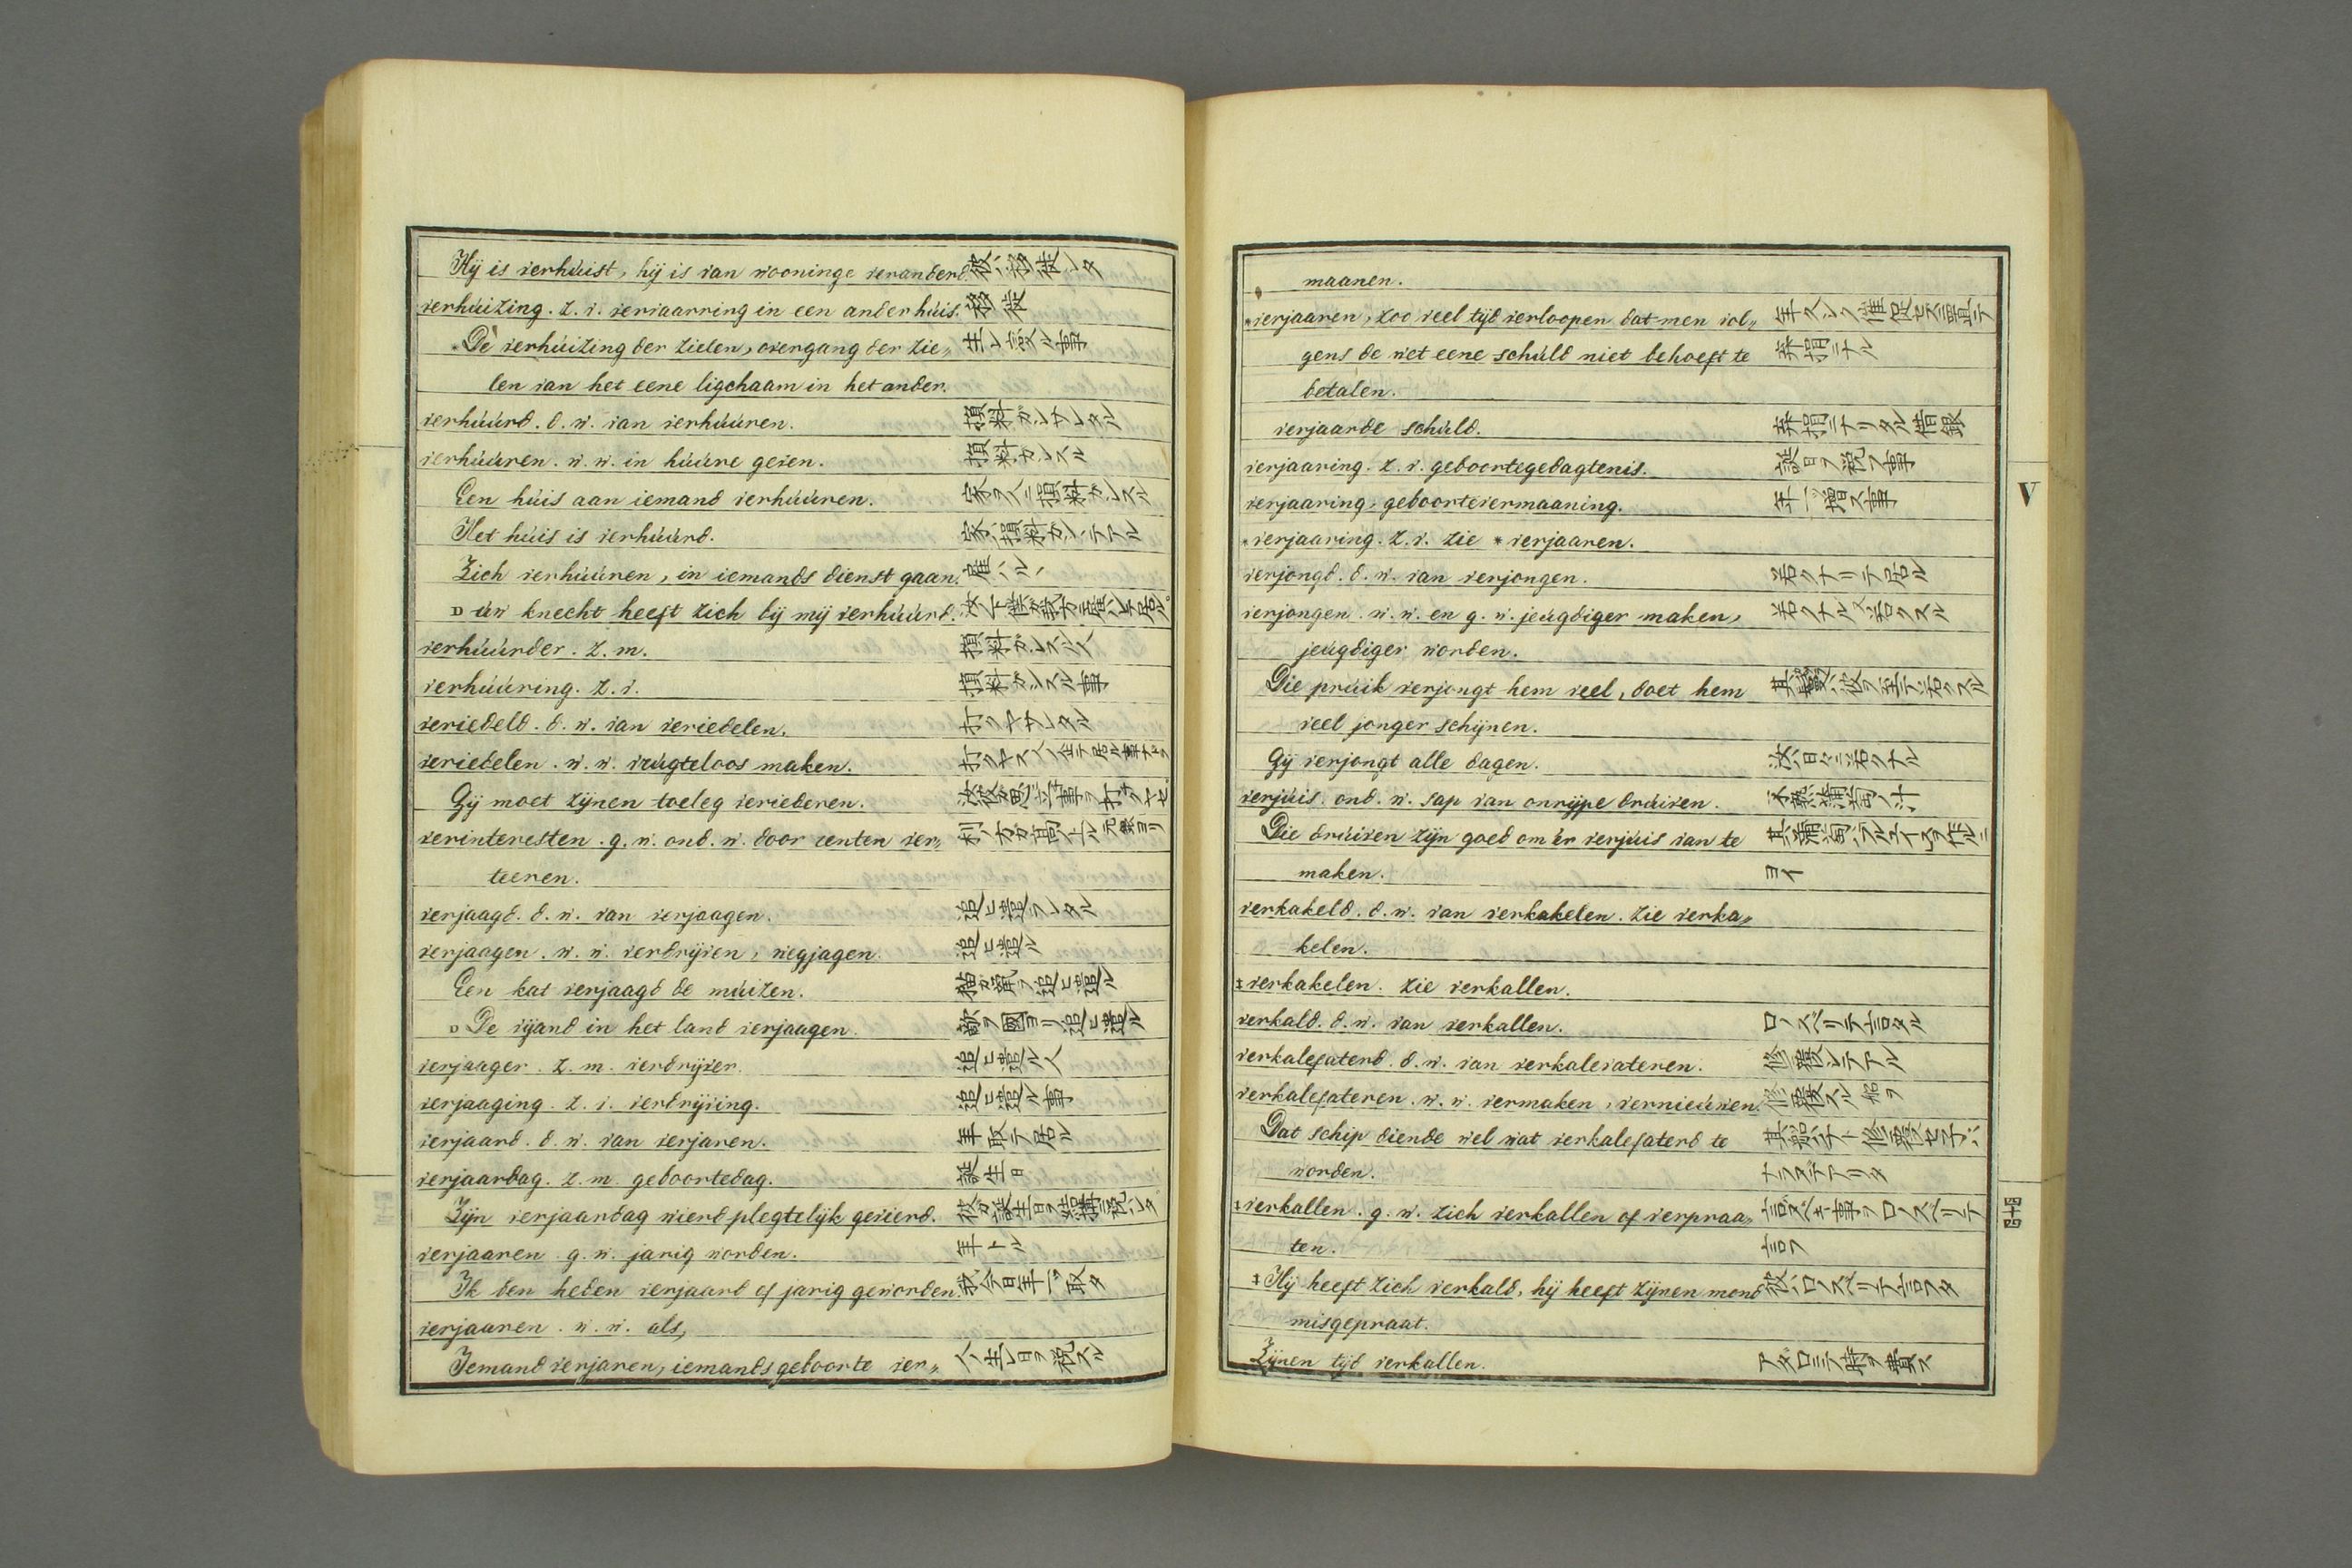 Hij is verhúist, hij is van wooninge veranderd. 彼ハ移徙シタ
verhúizing. z. v. vervaarring in een ander húis. 移徙
De verhúizing der zielen, overgang der zie„ 生レ変ル事
len van het eene ligchaam in het ander.
verhúúrd. d. w. van verhúúren. 損料ガシサレタル
verhúúren. w. w. in húúre geven. 損料ガシスル
Een húis aan iemand verhúúren. 家ヲ人ニ損料ガシスル
Het húis is verhúúrd. 家ハ損料ガシシテアル
Zich verhúúren, in iemands dienst gaan. 雇ハルヽ
D úw knecht heeft zich bij mij verhúúrd. 汝ノ下僕ガ我方ニ雇ハレテ居ル
verhúúrder. z. m. 損料ガシスル人
verhúúring. z. v. 損料ガシスル事
veriedeld. d. w. van veriedelen. 打クヤサレタル
veriedelen. w. w. vrúgteloos maken. 打クヤス
Gij moet zijnen toeleg veriederen.
verinteresten. g. w. oud. w. door renten ver„ 利ノ方ガ高ク上ル元銀ヨリ
teeren.
verjaagd. d. w. van verjaagen. 追ヒ遣ラレタル
verjaagen. w. w. verdrijven, wegjagen. 追ヒ遣ル
Een kat verjaagd de múizen. 猫ガ鼠ヲ追ヒ遣ル
D De vijand in het land verjaagen. 敵ヲ國ヨリ追ヒ遣ル
verjaager. z. m. verdrijver. 追ヒ遣ル人
verjaaging. z. v. verdrijving. 追ヒ遣ル事
verjaard. d. w. van verjaren. 年取テ居ル
verjaardag. z. m. geboortedag. 誕生日
Zijn verjaardag wierd plegtelijk gevierd. 彼ガ誕生日ヲ結構ニ祝シタ
verjaaren. g. w. jarig worden. 年トル
Ik ben heden verjaard of jarig geworden. 我ハ今日年一ツ取タ
verjaaren. w. w. als,
Iemand verjaren, iemands geboorte ver„ 人ノ生レ日ヲ祝スル
maanen.
*verjaaren, zoo veel tijd verloopen dat men vol„ 年久シク催促セズニ置テ
gens de wet eene schúld niet behoeft te 弃捐ニナル
betalen.
verjaarde schúld. 弃捐ニナリタル借銀
verjaaring. z. v. geboortegedagtenis. 誕日ヲ祝フ事
verjaaring, geboortevermaaning. 年一ツ増ス事
*verjaaring. z. v. zie * verjaaren.
verjongd. d. w. van verjongen. 若クナリテ居ル
verjongen. w. w. en g. w. jeúgdiger maken, 若クナル又若クスル
jeúgdiger worden.
Die prúik verjongt hem veel, doet hem 其鬘ハ彼ヲ至テ若クスル
veel jonger schijnen.
Gij verjongt alle dagen. 汝ハ日々ニ若クナル
verjúis. oud. w. sap van onrijpe drúiven. 不熟葡萄ノ汁
Die drúiven zijn goed om 'er verjúis van te
maken. ヨイ
verkakeld. d. w. van verkakelen. zie verka„
kelen.
‡verkakelen. zie verkallen.
verkald. d. w. van verkallen. 口ノスベリテ言タル
verkalefaterd. d. w. van verkalevateren. 修覆シテアル
verkalefateren. w. w. vermaken, vernieúwen. 修覆スル船ヲ
Dat schip diende wel wat verkalefaterd te 其船ハチト修覆セ子バ
worden. ナラヌデアリタ
‡verkallen. g. w. zich verkallen of verpraa„ 言ベキ事ヲ口ノスベリテ
ten. 言フ
‡ Hij heeft zich verkald, hij heeft zijnen mond 彼ハ口ノスベリテ言フタ
misgepraat.
Zijnen tijd verkallen. アダ口ニテ時ヲ費ス
V
四十四